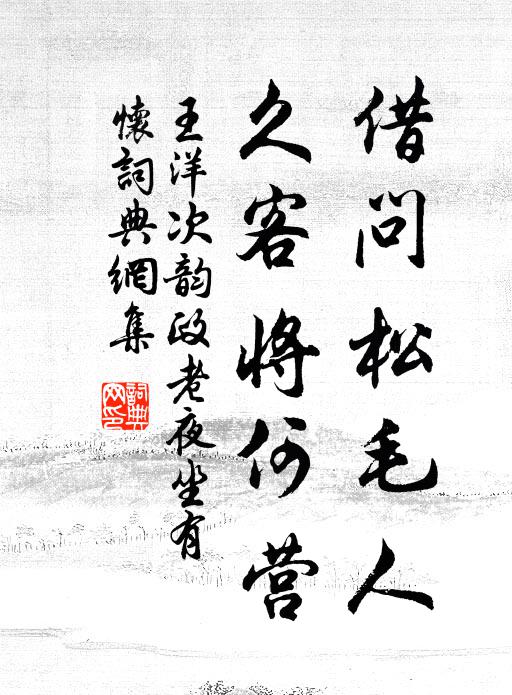 借问松毛人
久客将何营
王洋次韵政老夜坐有
怀词典網集
詞典
网印